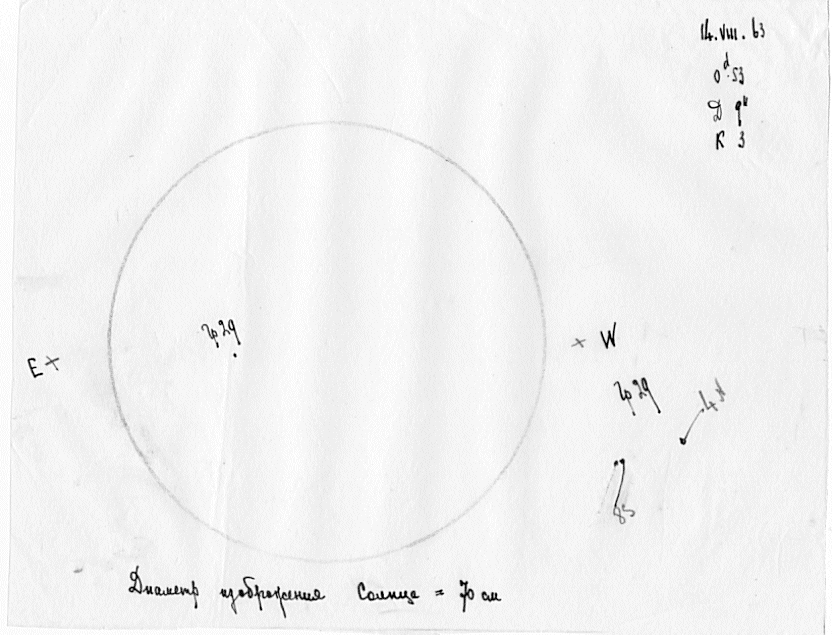 14.VIII.63
0ᵈ.53
D 9ᵏ
K 3
гр 29
E
W
гр 29
4N
8S
Диаметр изображения Солнца = 70 см